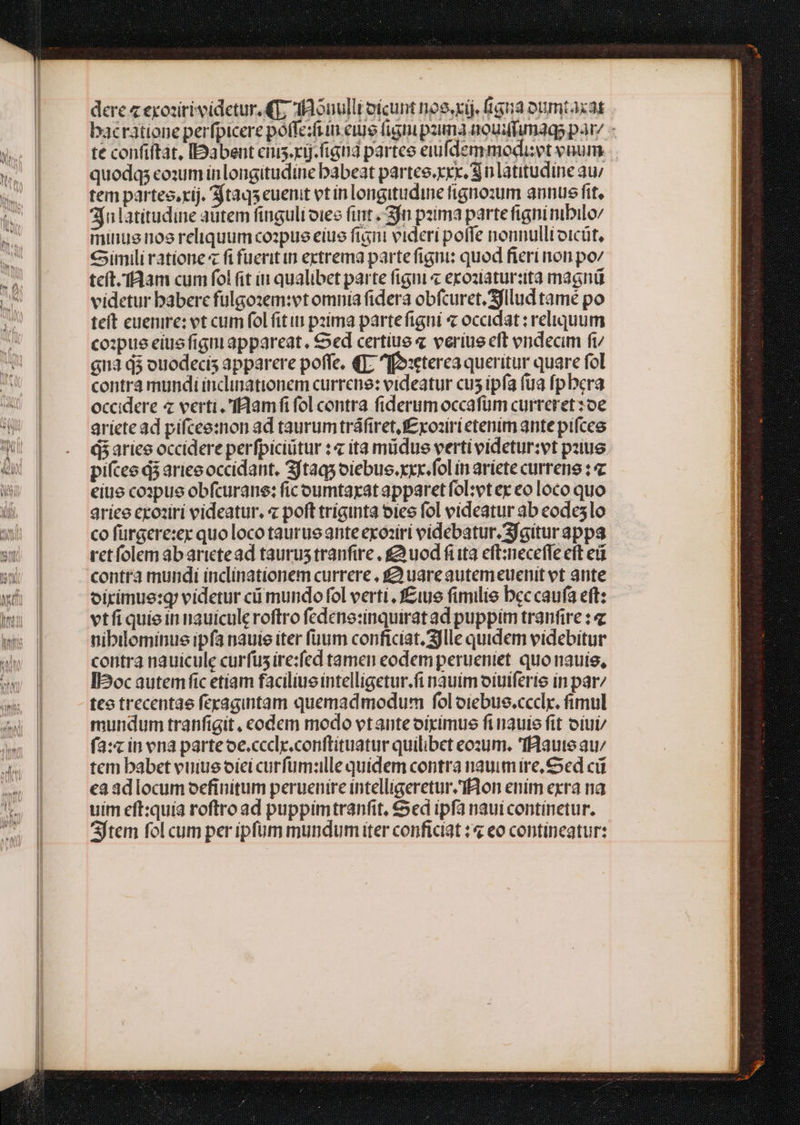 dere ⁊ exoꝛiri videtur. ¶ Nōnulli dicunt nos.xij. ſigna dumtaxat
hac ratione perſpicere poſſe:ſi in eius ſigni pꝛima nouiſſimaqꝫ par/
te conſiſtat. Habent eniꝫ.xij.ſigna partes eiuſdemmodi:vt vnum
quodqꝫ eoꝛum in longitudine habeat partes.xxx. In latitudine au/
tem partes.xij. Itaqꝫ euenit vt in longitudine ſignoꝛum annus ſit.
In latitudine autem ſinguli dies ſint. In pꝛima parte ſigni nihilo/
minus nos reliquum coꝛpus eius ſigni videri poſſe nonnulli dicūt.
Simili ratione ⁊ ſi fuerit in extrema parte ſigni: quod fieri non po/
teſt. Nam cum ſol ſit in qualibet parte ſigni ⁊ exoꝛiatur:ita magnū
videtur habere fulgoꝛem:vt omnia ſidera obſcuret. Illud tamē po
teſt euenire: vt cum ſol ſit in pꝛima parte ſigni ⁊ occidat : reliquum
coꝛpus eius ſigni appareat. Sed certius ⁊ verius eſt vndecim ſi/
gna qꝫ duodecis apparere poſſe. ¶ Pꝛeterea queritur quare ſol
contra mundi inclinationem currens: videatur cuꝫ ipſa ſua ſphera
occidere ⁊ verti. Nam ſi ſol contra ſiderum occaſum curreret : de
ariete ad piſces:non ad taurum trāſiret. Exoꝛiri etenim ante piſces
qꝫ aries occidere perſpiciūtur : ⁊ ita mūdus verti videtur:vt pꝛius
piſces qꝫ aries occidant. Itaqꝫ diebus.xxx.ſol in ariete currens : ⁊
eius coꝛpus obſcurans: ſic dumtaxat apparet ſol:vt ex eo loco quo
aries exoꝛiri videatur. ⁊ poſt triginta dies ſol videatur ab eodeꝫ lo
co ſurgere:ex quo loco taurus ante exoꝛiri videbatur. Igitur appa
ret ſolem ab ariete ad tauruꝫ tranſire. Quod ſi ita eſt:neceſſe eſt eū
contra mundi inclinationem currere. Quare autem euenit vt ante
diximus:ꝙ videtur cū mundo ſol verti. Eius ſimilis hęc cauſa eſt:
vt ſi quis in nauiculę roſtro ſedens:inquirat ad puppim tranſire : ⁊
nihilominus ipſa nauis iter ſuum conficiat. Ille quidem videbitur
contra nauiculę curſuꝫ ire:ſed tamen eodem perueniet quo nauis.
Hoc autem ſic etiam facilius intelligetur.ſi nauim diuiſeris in par/
tes trecentas ſexagintam quemadmodum ſol diebus.ccclx. ſimul
mundum tranſigit. eodem modo vt ante diximus ſi nauis ſit diui/
ſa:⁊ in vna parte de.ccclx.conſtituatur quilibet eoꝛum. Nauis au/
tem habet vnius diei curſum:ille quidem contra nauim ire. Sed cū
ea ad locum definitum peruenire intelligeretur. Non enim exra na
uim eſt:quia roſtro ad puppim tranſit. Sed ipſa naui continetur.
Item ſol cum per ipſum mundum iter conficiat : ⁊ eo contineatur: